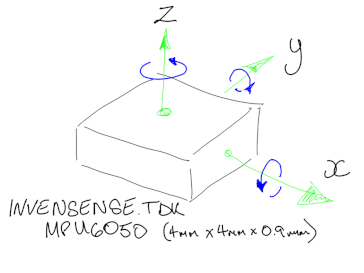 z
y
x
INVENSENSE.TDK
MPU6050 (4mm x 4mm x 0.9mm)